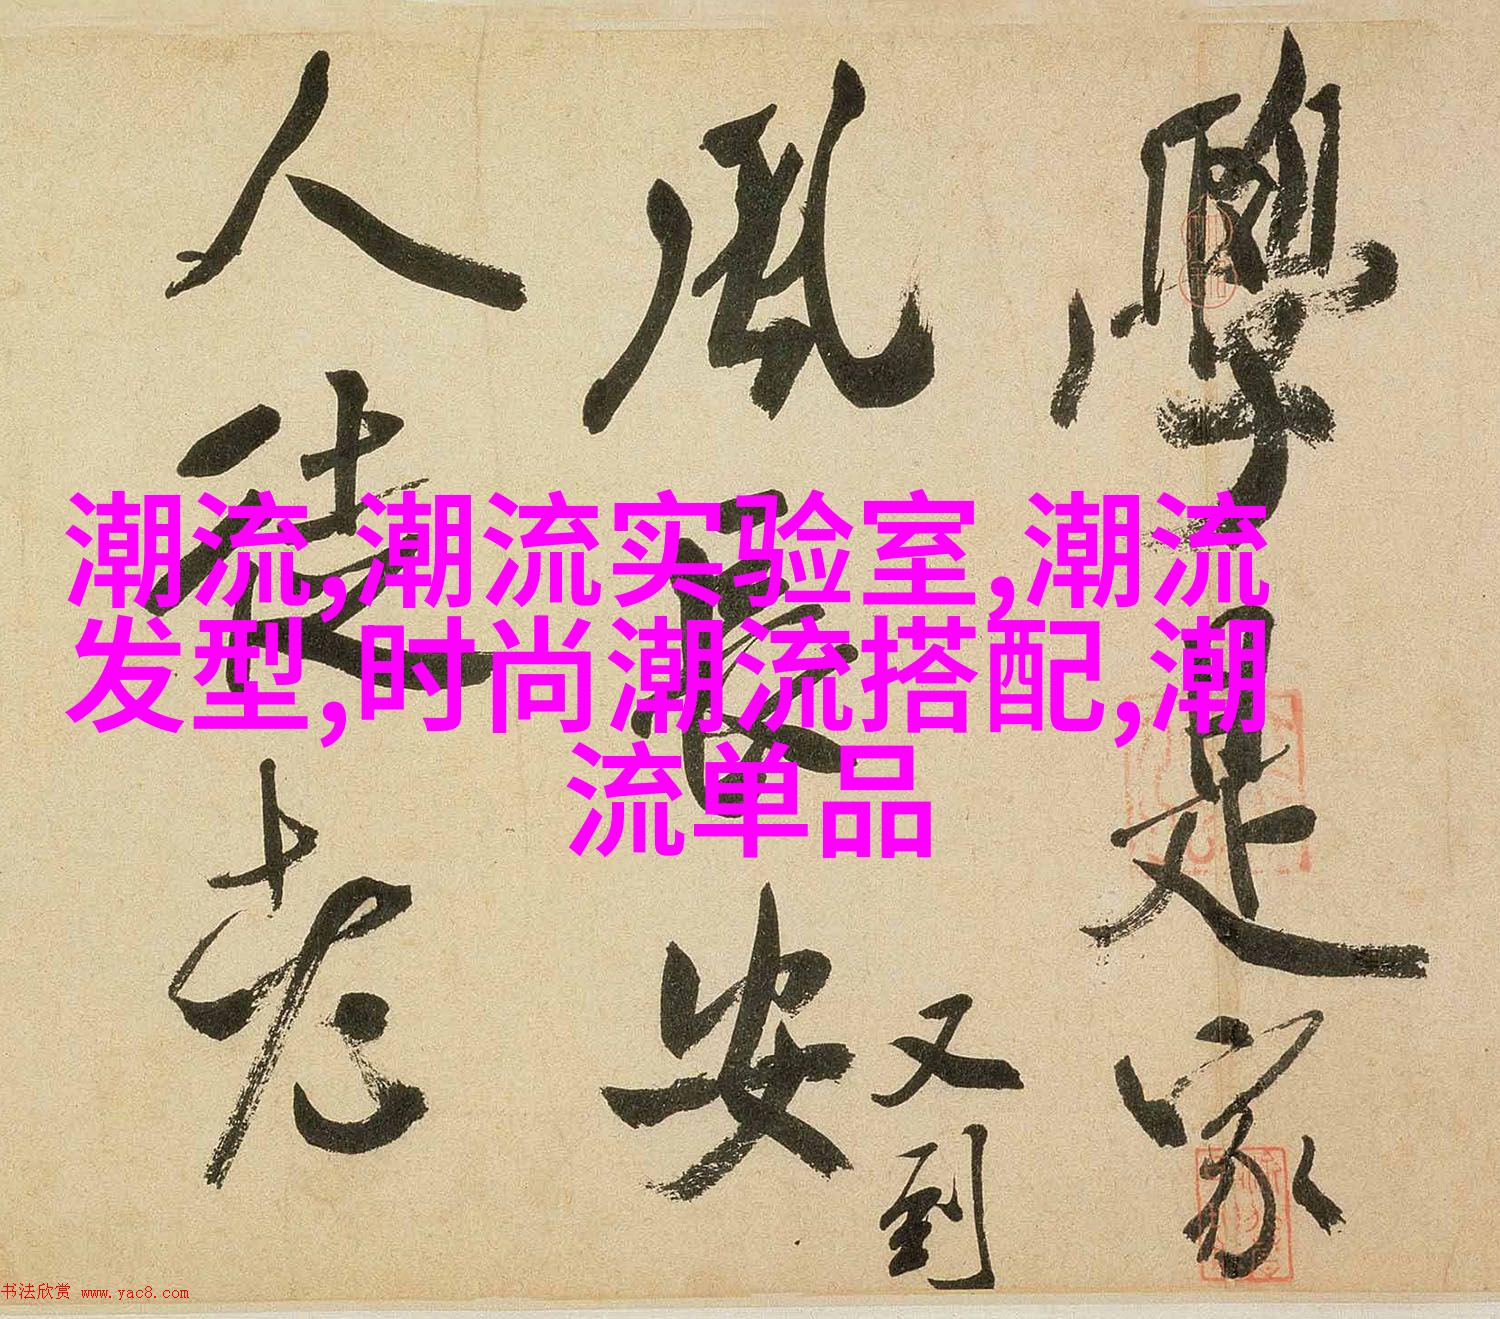 學是家
風長安
又到
人徒老
潮流,潮流实验室,潮流
发型,时尚潮流搭配,潮
流单品
书法欣赏 www.yac8.com